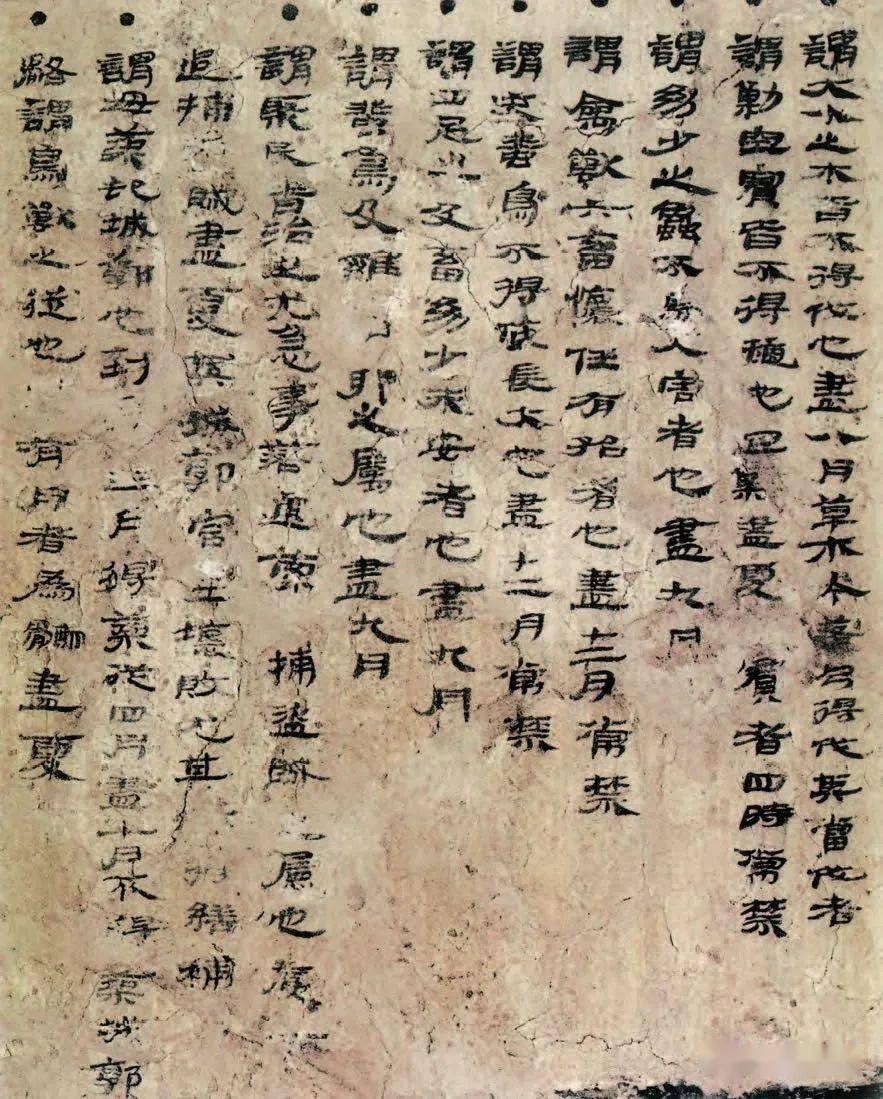 •謂大小之木皆不得伐也盡八月草木令落乃得伐其當伐者
•謂勦空實皆不得擿也空勦盡夏實者四時常禁
•謂幼少之蟲不為人害者也盡九月
•謂禽獸六畜懷任有胎者也盡十二月常禁
•謂夭蜚鳥不得使長大也盡十二月常禁
•謂四足之及畜幼少未安者也盡九月
•謂蜚鳥及雞卵之屬也盡九月
•謂聚民繕治也尤急事若追索捕盜賊之屬也
追捕盜賊盡夏其城郭宮室壞敗尤甚者得繕補
•謂毋築起城郭也三月得築從四月盡七月不得築城郭
•骼謂鳥獸之也有肉者為骴盡夏